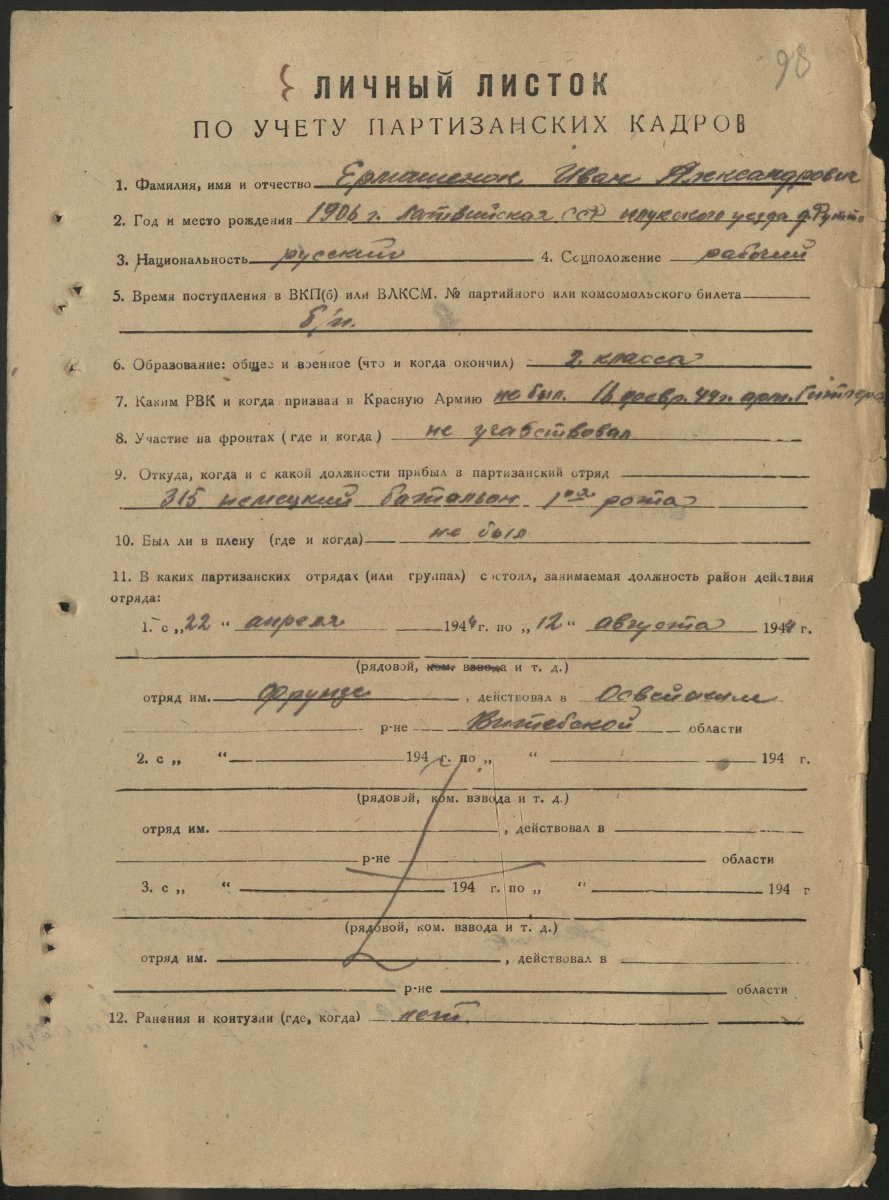 98
ЛИЧНЫЙ ЛИСТОК
ПО УЧЕТУ ПАРТИЗАНСКИХ КАДРОВ
1. Фамилия, имя и отчество Ермашенок Иван Александрович
2. Год и место рождения 1906 г. Латвийская ССР илукского уезда д.
3. Национальность русский 4. Соцположение рабочий
5. Время поступления в ВКП(б) или ВЛКСМ. № партийного или комсомольского билета
б/п.
6. Образование: общее и военное (что и когда окончил) 2 класса
7. Каким РВК и когда призван в Красную Армию не был. 16 февр. 44 г. арм. Гитлера
8. Участие на фронтах (где и когда) не участвовал
9. Откуда, когда и с какой должности прибыл в партизанский отряд
315 немецкий батальон 1ая рота
10. Был ли в плену (где и когда) не был
11. В каких партизанских отрядах (или группах) состоял, занимаемая должность район действия
отряда:
1. с „22“ апреля 1944 г. по „12“ августа 1944 г.
(рядовой, ком. взвода и т. д.)
отряд им. Фрунзе, действовал в Освейским
р-не Витебской области
2. с „ “ 194 г. по „ “ 194 г.
(рядовой, ком. взвода и т. д.)
отряд им. , действовал в
р-не области
3. с „ “ 194 г. по „ “ 194 г
(рядовой, ком. взвода и т. д.)
отряд им. , действовал в
р-не области
12. Ранения и контузии (где, когда) нет.